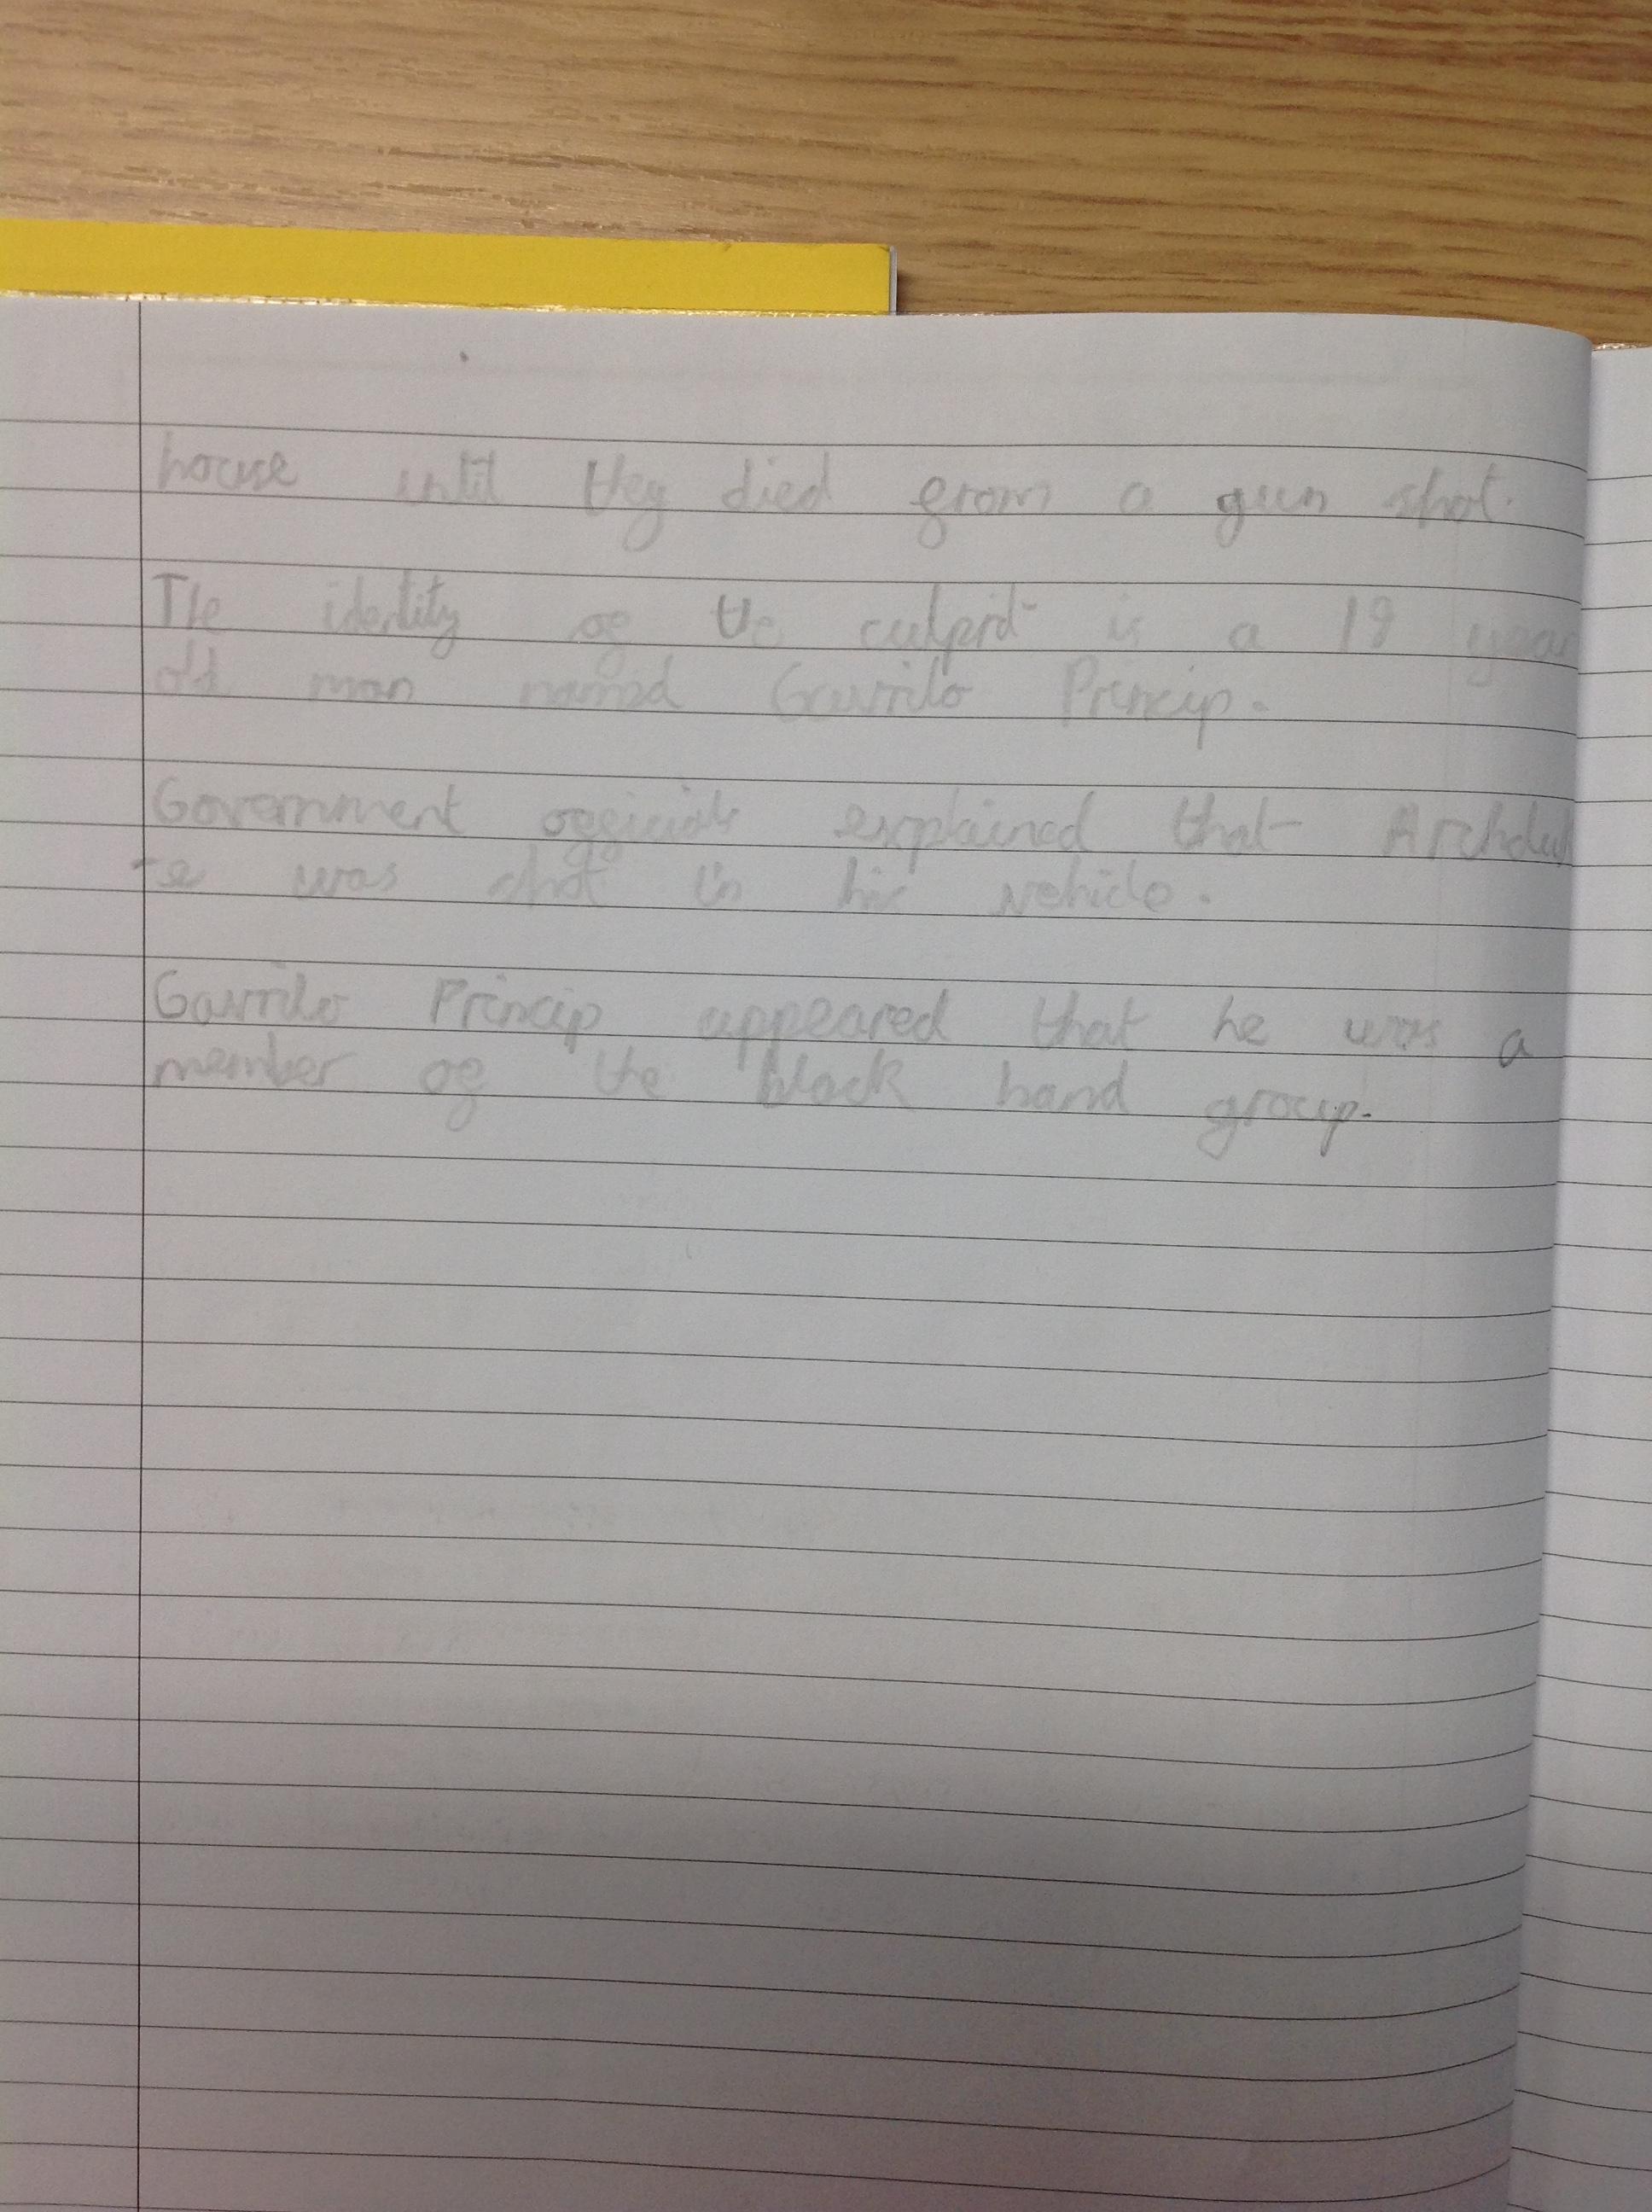 house until they died from a gun shot.
The identity of the culprit is a 19 year
old man named Gavrilo Princip.
Government officials explained that Archduk
-e was shot in his vehicle.
Gavrilo Princip appeared that he was a
member of the black hand group.